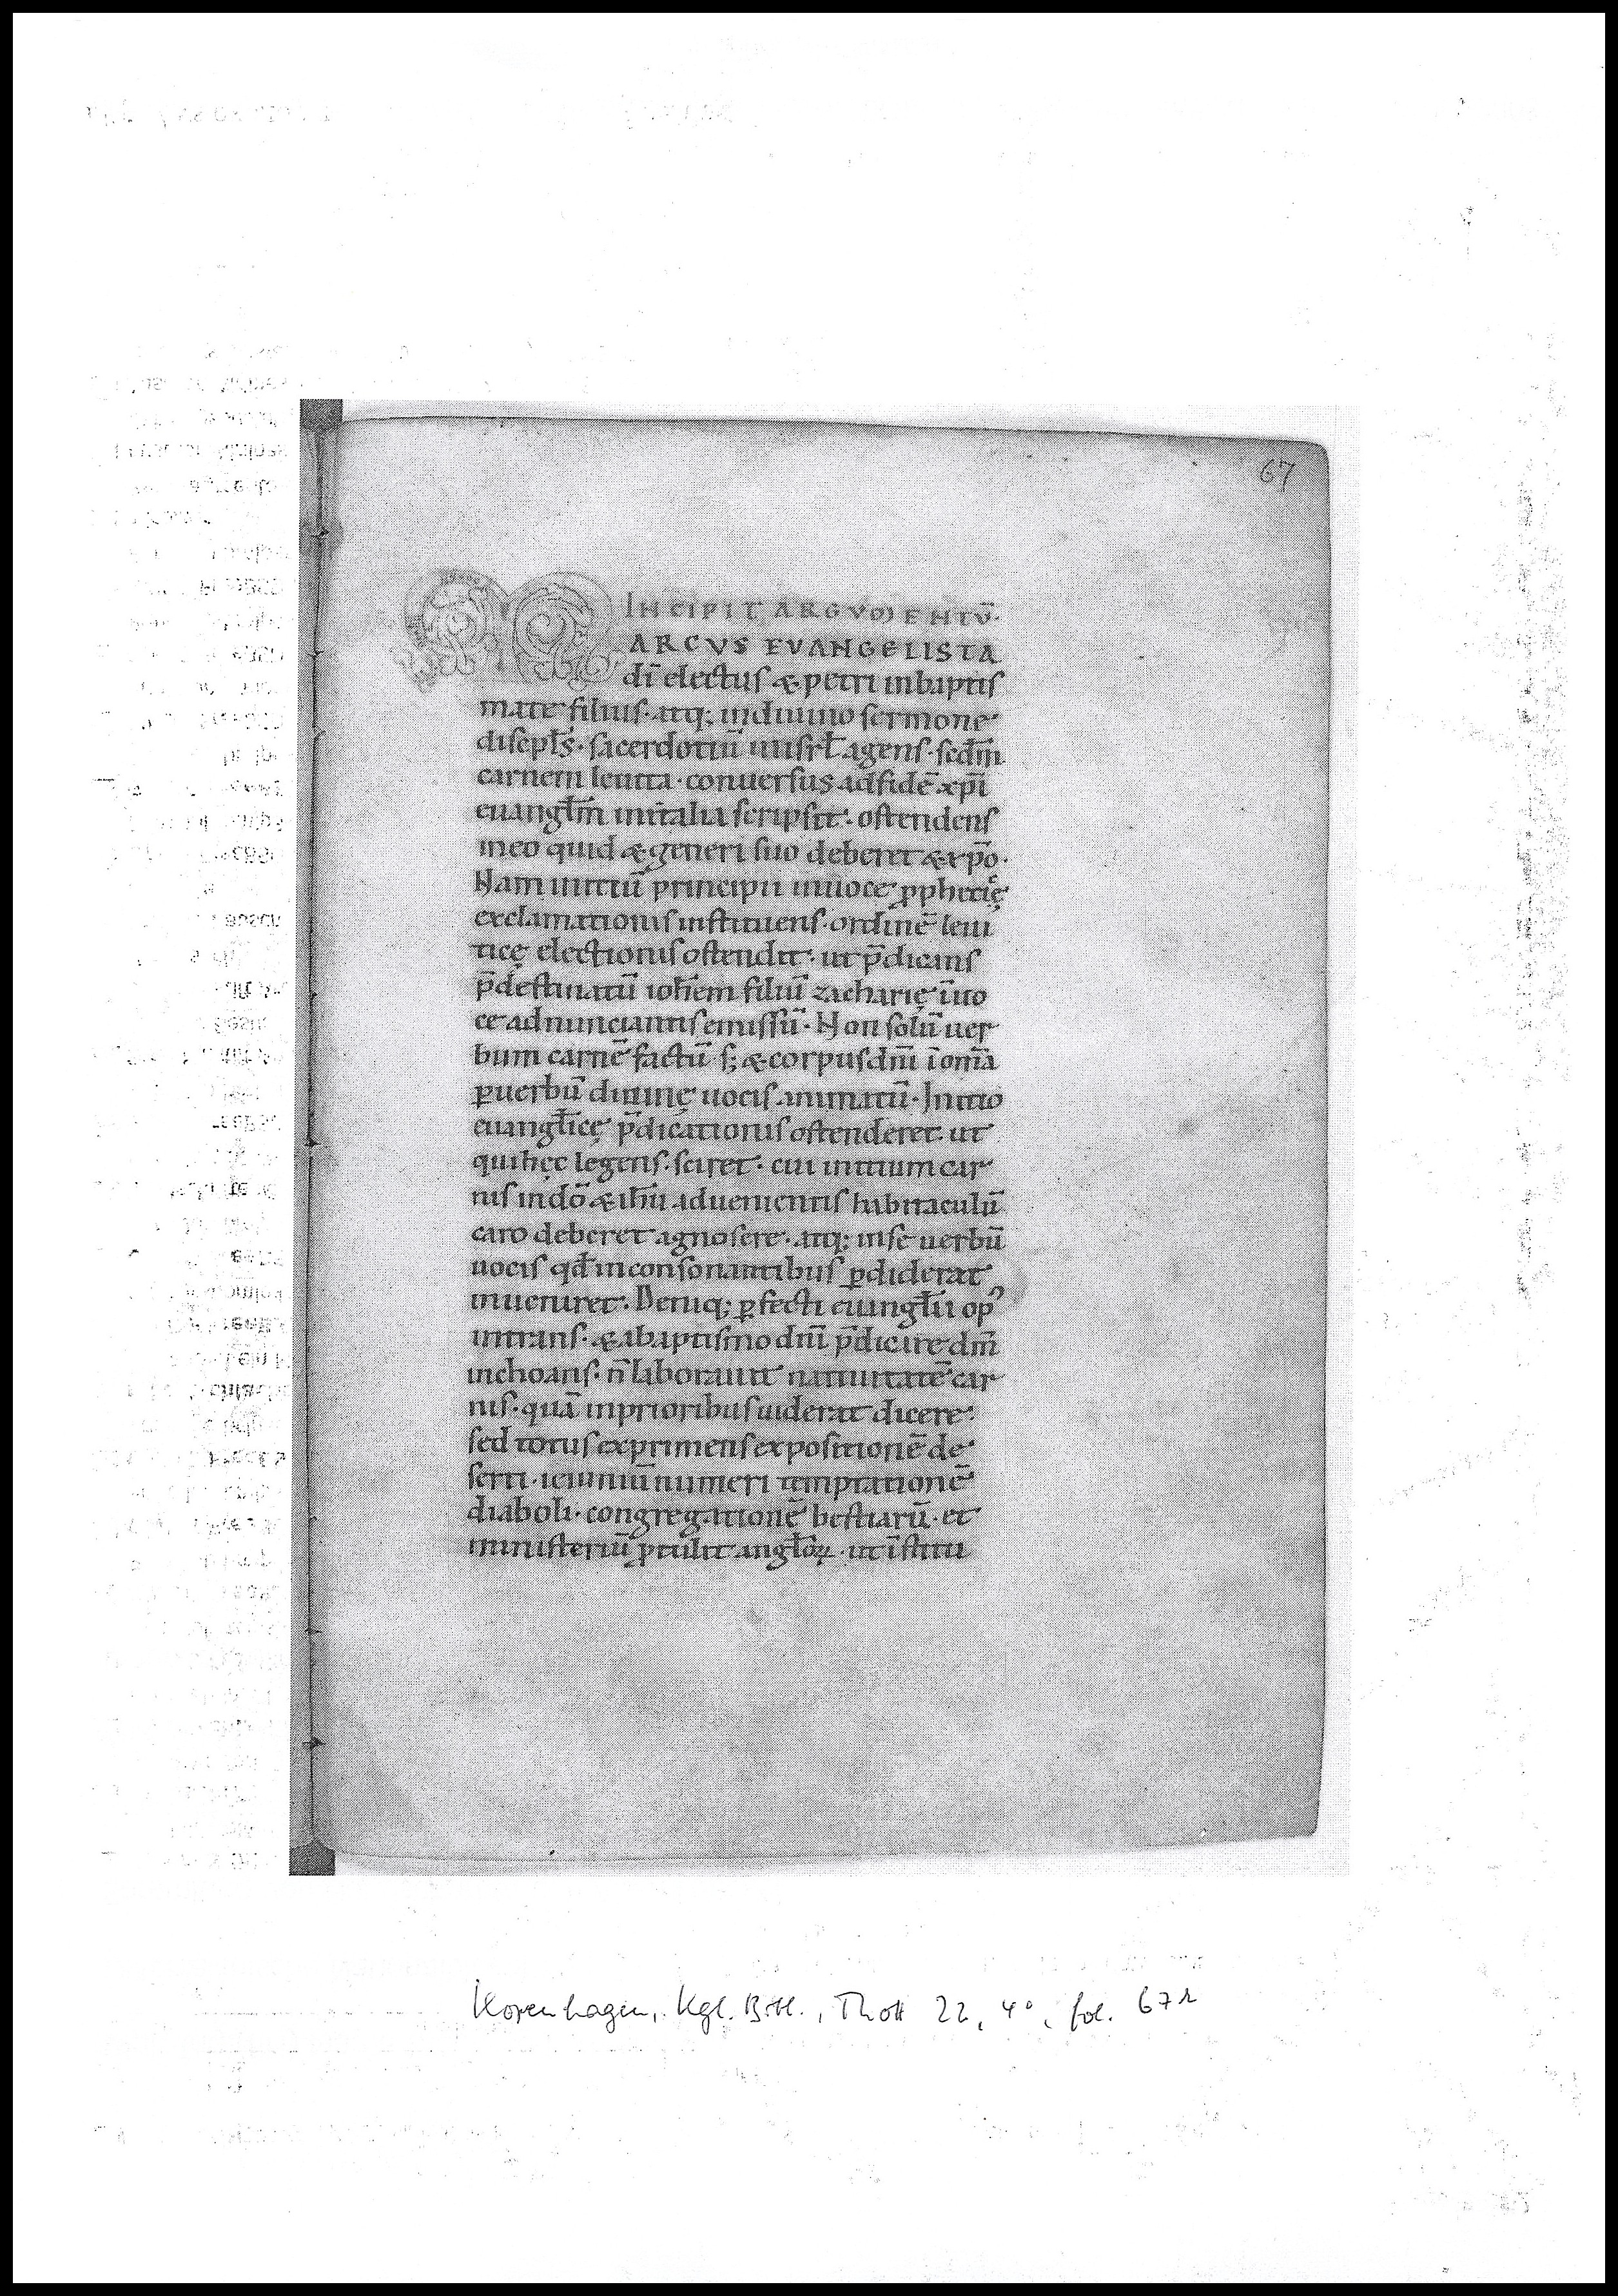 67
INCIPIT ARGVMENTŪ·
MARCVS EVANGELISTA
dī electus & petri inbaptis
mate filius· atq; indiuino sermone
discipłs· sacerdotiū inisrł agens· scđm
carnem leuita· conuersus adfidē xp̄i
euangłm initalia scripsit· ostendens
ineo quid & generi suo deberet & xp̄o·
Nam initiū principii inuoce ꝓpheticę
exclamationis instituens· ordinē leui
ticę electionis ostendit· ut p̄dicans
p̄destinatū ioħem filiū zacharię īuo
ce adnunciantis emissū· Non solū uer
bum carnē factū s; & corpus dn̄i ī om̄a
ꝑuerbū diuinę uocis animatū· Initio
euangłicę p̄dicationis ostenderet· ut
quihęc legens· sciret· cui initium car
nis indō & iħu aduenientis habitaculū
caro deberet agnosere· atq; inse uerbū
uocis qđ inconsonantibus ꝑdiderat
inueniret· Deniq; ꝑfecti euangłii opꝰ
intrans· & abaptismo dn̄i p̄dicare dm̄
inchoans· n̄ laborauit natiuitatē car
nis· quā inprioribus uiderat dicere·
sed totus exprimens expositionē de
serti· ieiuniū numeri temptationē
diaboli· congregationē bestiarū· et
ministeriū ꝓtulit angłoꝝ· ut īstitu
Kopenhagen, Kgl. Bibl., Thott 22, 4°, fol. 67r